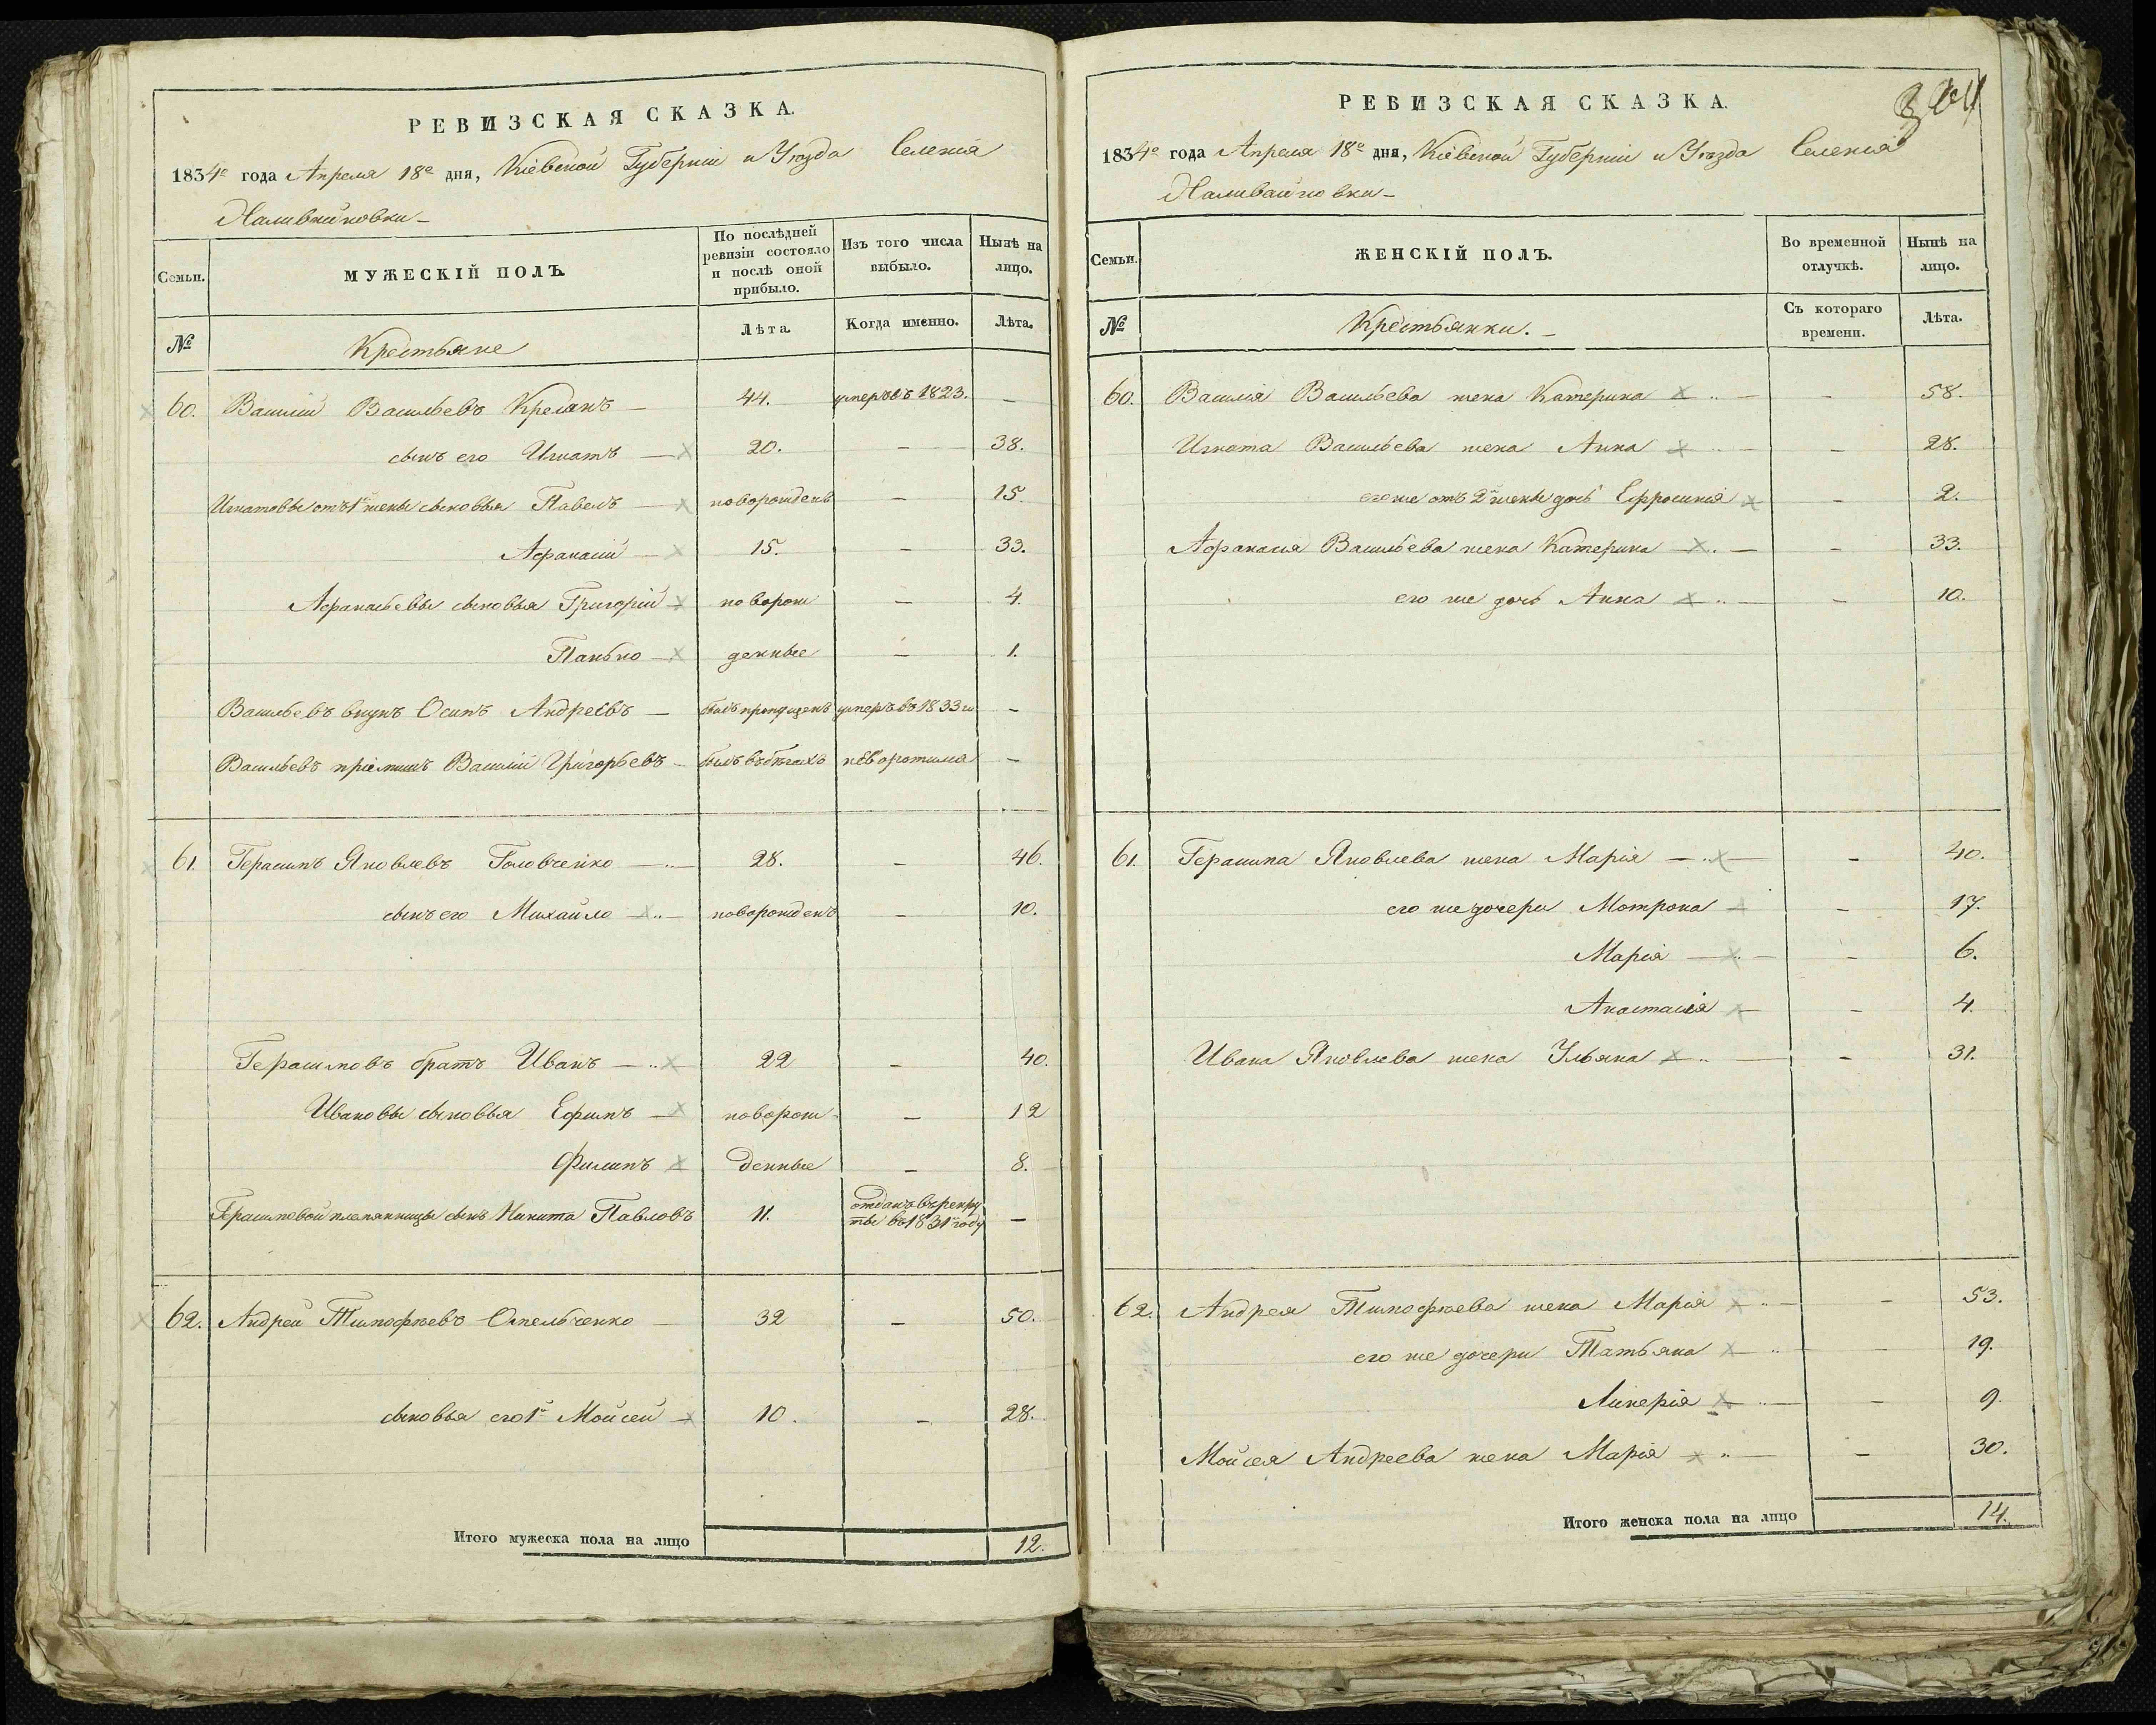 РЕВИЗСКАЯ СКАЗКА.
1834го года Апреля 18го дня, Кіевской Губерніи и Уѣзда Селенія
Наливайковки
Семьи.
МУЖЕСКІЙ ПОЛЪ.
По послѣдней ревизіи состояло и послѣ оной прибыло.
Изъ того числа выбыло.
Нынѣ на лицо.
№
Крестьяне
Лѣта.
Когда именно.
Лѣта.
60. Василій Васильевъ — 44. умеръ въ 1823. —
сынъ его Игнатъ — 20. — 38.
Игнатовы отъ 1й жены сыновья Павелъ — новорожденъ — 15.
Афанасій — 15. — 33.
Афанасьевы сыновья Григорій новорож — 4.
Панько — денные — 1.
Васильевъ внукъ Осипъ Андреевъ — былъ пропущенъ умеръ въ 1833 —
Васильевъ пріемышъ Василій Григорьевъ — былъ въ бѣгахъ —
61. Герасимъ Яковлевъ Головченко — 28. — 46.
сынъ его Михайло — новорожденъ — 10.
Герасимовъ братъ Иванъ — 22 — 40.
Ивановы сыновья Ефимъ — новорож — 12
Филипъ денные — 8.
Герасимовой племянницы сынъ Никита Павловъ 11. отданъ въ рекру
ты въ 1831 году —
62. Андрей Тимофѣевъ Омельченко — 32 — 50.
сыновья его 1й Мойсей — 10. — 28.
Итого мужеска пола на лицо 12.
304
РЕВИЗСКАЯ СКАЗКА.
1834го года Апреля 18го дня, Кіевской Губерніи и Уѣзда Селенія
Наливайковки
Семьи.
ЖЕНСКІЙ ПОЛЪ.
Во временной отлучкѣ.
Нынѣ на лицо.
№
Крестьянки.
Съ котораго времени.
Лѣта.
60. Василія Васильева жена Катерина — — 58.
Игната Васильева жена Анна — — 28.
его же отъ 2й жены дочь Ефросинія — 2.
Афанасія Васильева жена Катерина — — 33.
его же дочь Анна — — 10.
61. Герасима Яковлева жена Марія — — 40.
его же дочери Мотрона — — 17.
Марія — — 6.
Анастасія — — 4.
Ивана Яковлева жена Ульяна — — 31.
62. Андрея Тимофѣева жена Марія — — 53.
его же дочери Татьяна — — 19.
Ликерія — — 9.
Мойсея Андреева жена Марія — — 30.
Итого женска пола на лицо 14.